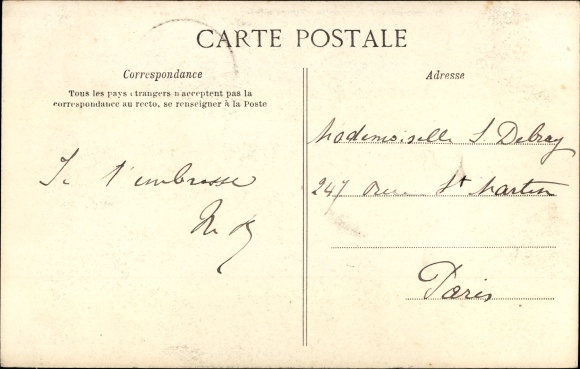 CARTE POSTALE
Correspondance
Tous les pays étrangers n'acceptent pas la
correspondance au recto, se renseigner à la Poste
Je t'embrasse
Adresse
Mademoiselle S Debray
247 rue St Martin
Paris